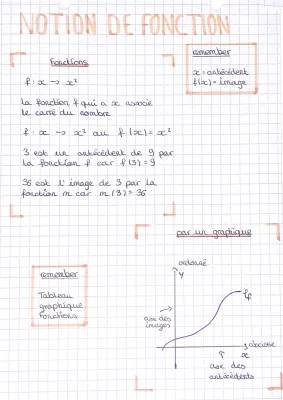 NOTION DE FONCTION
Fonctions
f : x → x²
la fonction f qui a x associe
le carré du nombre
f : x → x² ou f(x) = x²
3 est un antécédent de 9 par
la fonction f car f(3) = 9
36 est l'image de 3 par la
fonction m car m(3) = 36
remember
x = antécédent
f(x) = image
par un graphique
ordonné
y
axe des
images
Cf
abscisse
x
axe des
antécédents
remember
Tableau
graphique
Fonctions